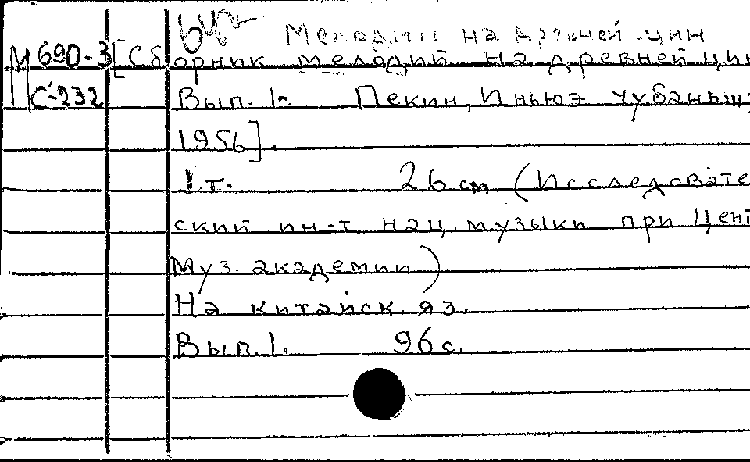 Мелодии на древней цин
М 690-3 [Сборник мелодий на древней цин
С-232 Вып. 1- Пекин, Иньюэ чубаньш
1956].
1 т. 26 см (Исследовате
ский ин-т нац. музыки при Цент
Муз. академии)
На китайск. яз.
Вып. 1. 96 с.